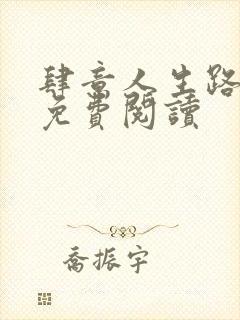 肆意人生路
免費閱讀
喬振宇